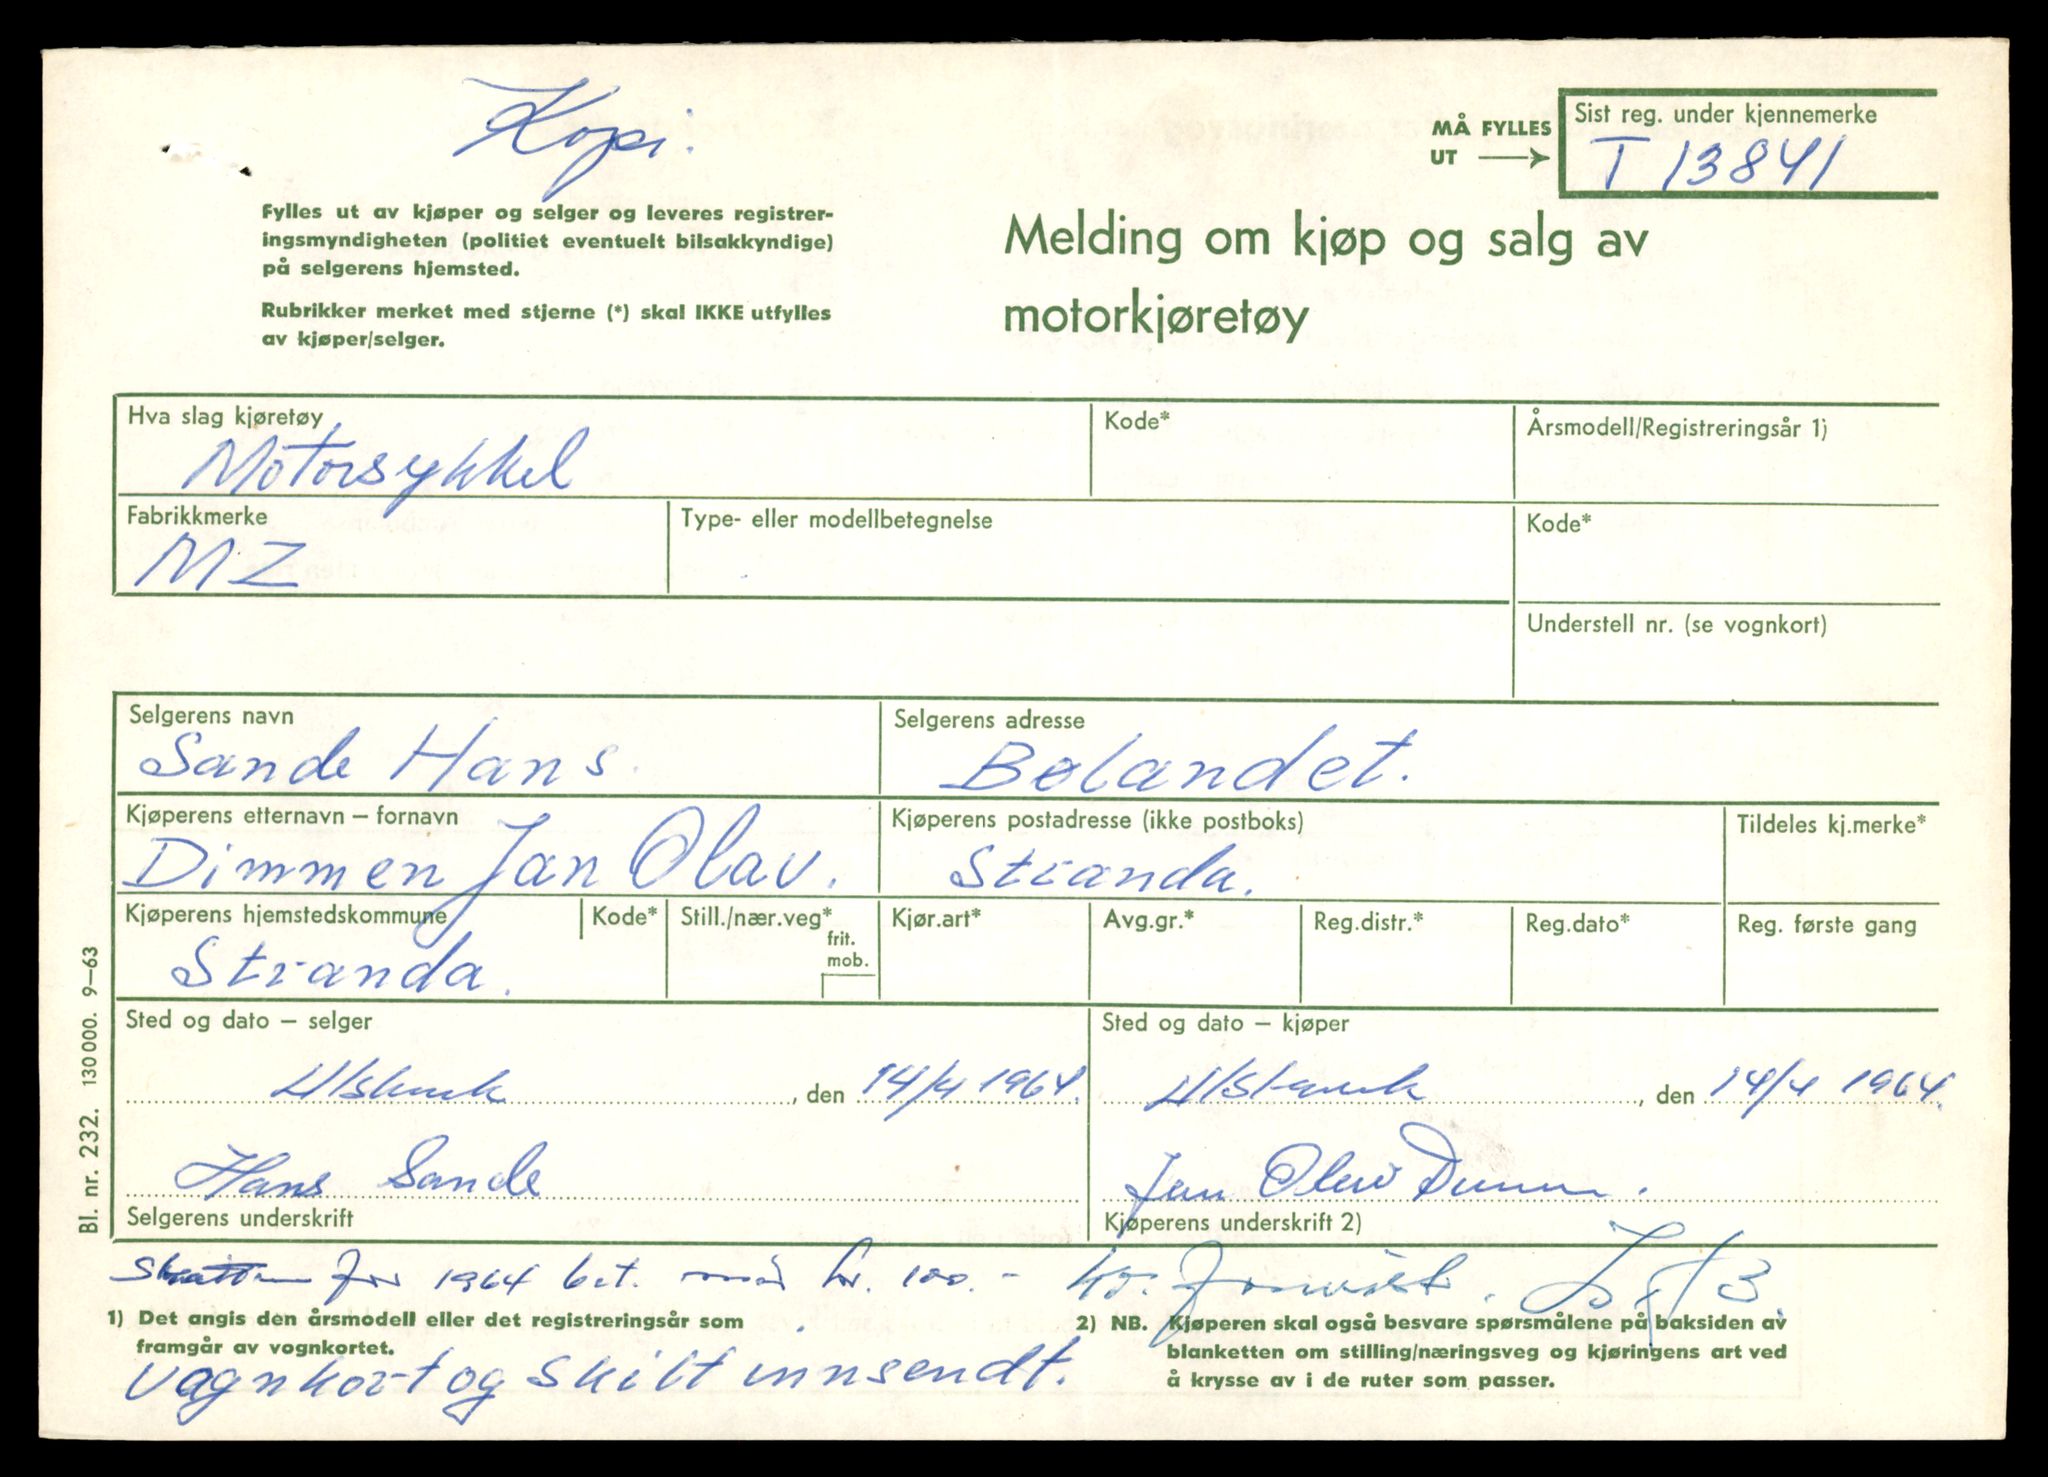 Kopi.
MÅ FYLLES UT
Sist reg. under kjennemerke
T 13841
Fylles ut av kjøper og selger og leveres registrer-
ingsmyndigheten (politiet eventuelt bilsakkyndige)
på selgerens hjemsted.
Rubrikker merket med stjerne (*) skal IKKE utfylles
av kjøper/selger.
Melding om kjøp og salg av
motorkjøretøy
Hva slag kjøretøy
Kode*
Årsmodell/Registreringsår 1)
Motorsykkel
Fabrikkmerke
Type- eller modellbetegnelse
Kode*
MZ
Understell nr. (se vognkort)
Selgerens navn
Selgerens adresse
Sande Hans.
Bølandet.
Kjøperens etternavn – fornavn
Kjøperens postadresse (ikke postboks)
Tildeles kj.merke*
Dimmen Jan Olav.
Stranda.
Kjøperens hjemstedskommune
Kode*
Still./nær.veg*
frit.
mob.
Kjør.art*
Avg.gr.*
Reg.distr.*
Reg.dato*
Reg. første gang
Stranda.
Sted og dato – selger
Sted og dato – kjøper
, den 14/4 1964.
, den 14/4 1964.
Hans Sande
Jan Olav Dimmen.
Selgerens underskrift
Kjøperens underskrift 2)
Skatten for 1964 bet. med kr. 100.-
1) Det angis den årsmodell eller det registreringsår som
framgår av vognkortet.
2) NB. Kjøperen skal også besvare spørsmålene på baksiden av
blanketten om stilling/næringsveg og kjøringens art ved
å krysse av i de ruter som passer.
vognkort og skilt innsendt.
Bl. nr. 232. 130 000. 9–63